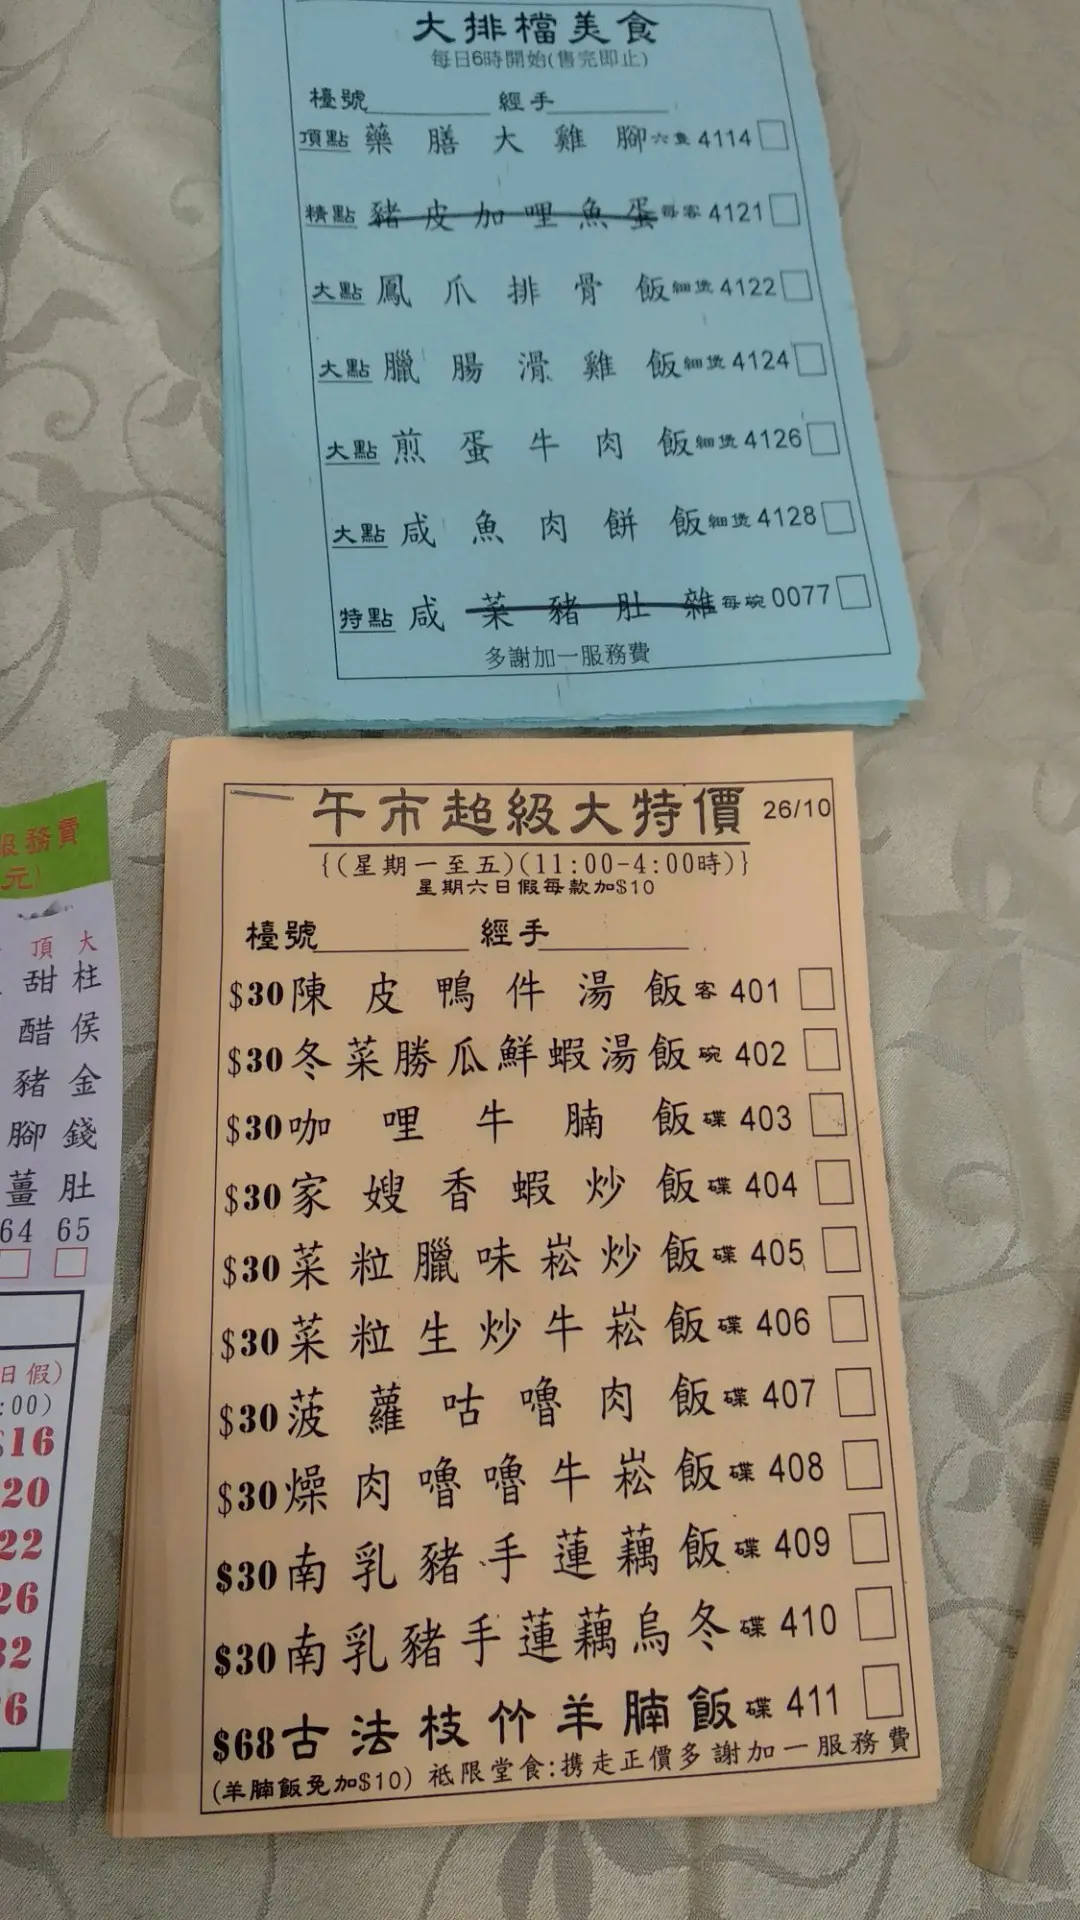 大排檔美食
每日6時開始(售完即止)
檯號 經手
頂點 藥膳大雞腳 六隻 4114
精點 豬皮加哩魚蛋 每客 4121
大點 鳳爪排骨飯 細煲 4122
大點 臘腸滑雞飯 細煲 4124
大點 煎蛋牛肉飯 細煲 4126
大點 咸魚肉餅飯 細煲 4128
特點 咸菜豬肚雜 每碗 0077
多謝加一服務費
午市超級大特價 26/10
{(星期一至五)(11:00-4:00時)}
星期六日假每款加$10
檯號 經手
$30 陳皮鴨件湯飯 客 401
$30 冬菜勝瓜鮮蝦湯飯 碗 402
$30 咖哩牛腩飯 碟 403
$30 家嫂香蝦炒飯 碟 404
$30 菜粒臘味崧炒飯 碟 405
$30 菜粒生炒牛崧飯 碟 406
$30 菠蘿咕嚕肉飯 碟 407
$30 燥肉嚕嚕牛崧飯 碟 408
$30 南乳豬手蓮藕飯 碟 409
$30 南乳豬手蓮藕烏冬 碟 410
$68 古法枝竹羊腩飯 碟 411
(羊腩飯免加$10) 祗限堂食:携走正價多謝加一服務費
服務費
元)
大
柱侯金錢肚
65
頂
甜醋豬腳薑
64
日假)
:00)
$16
20
22
26
32
6